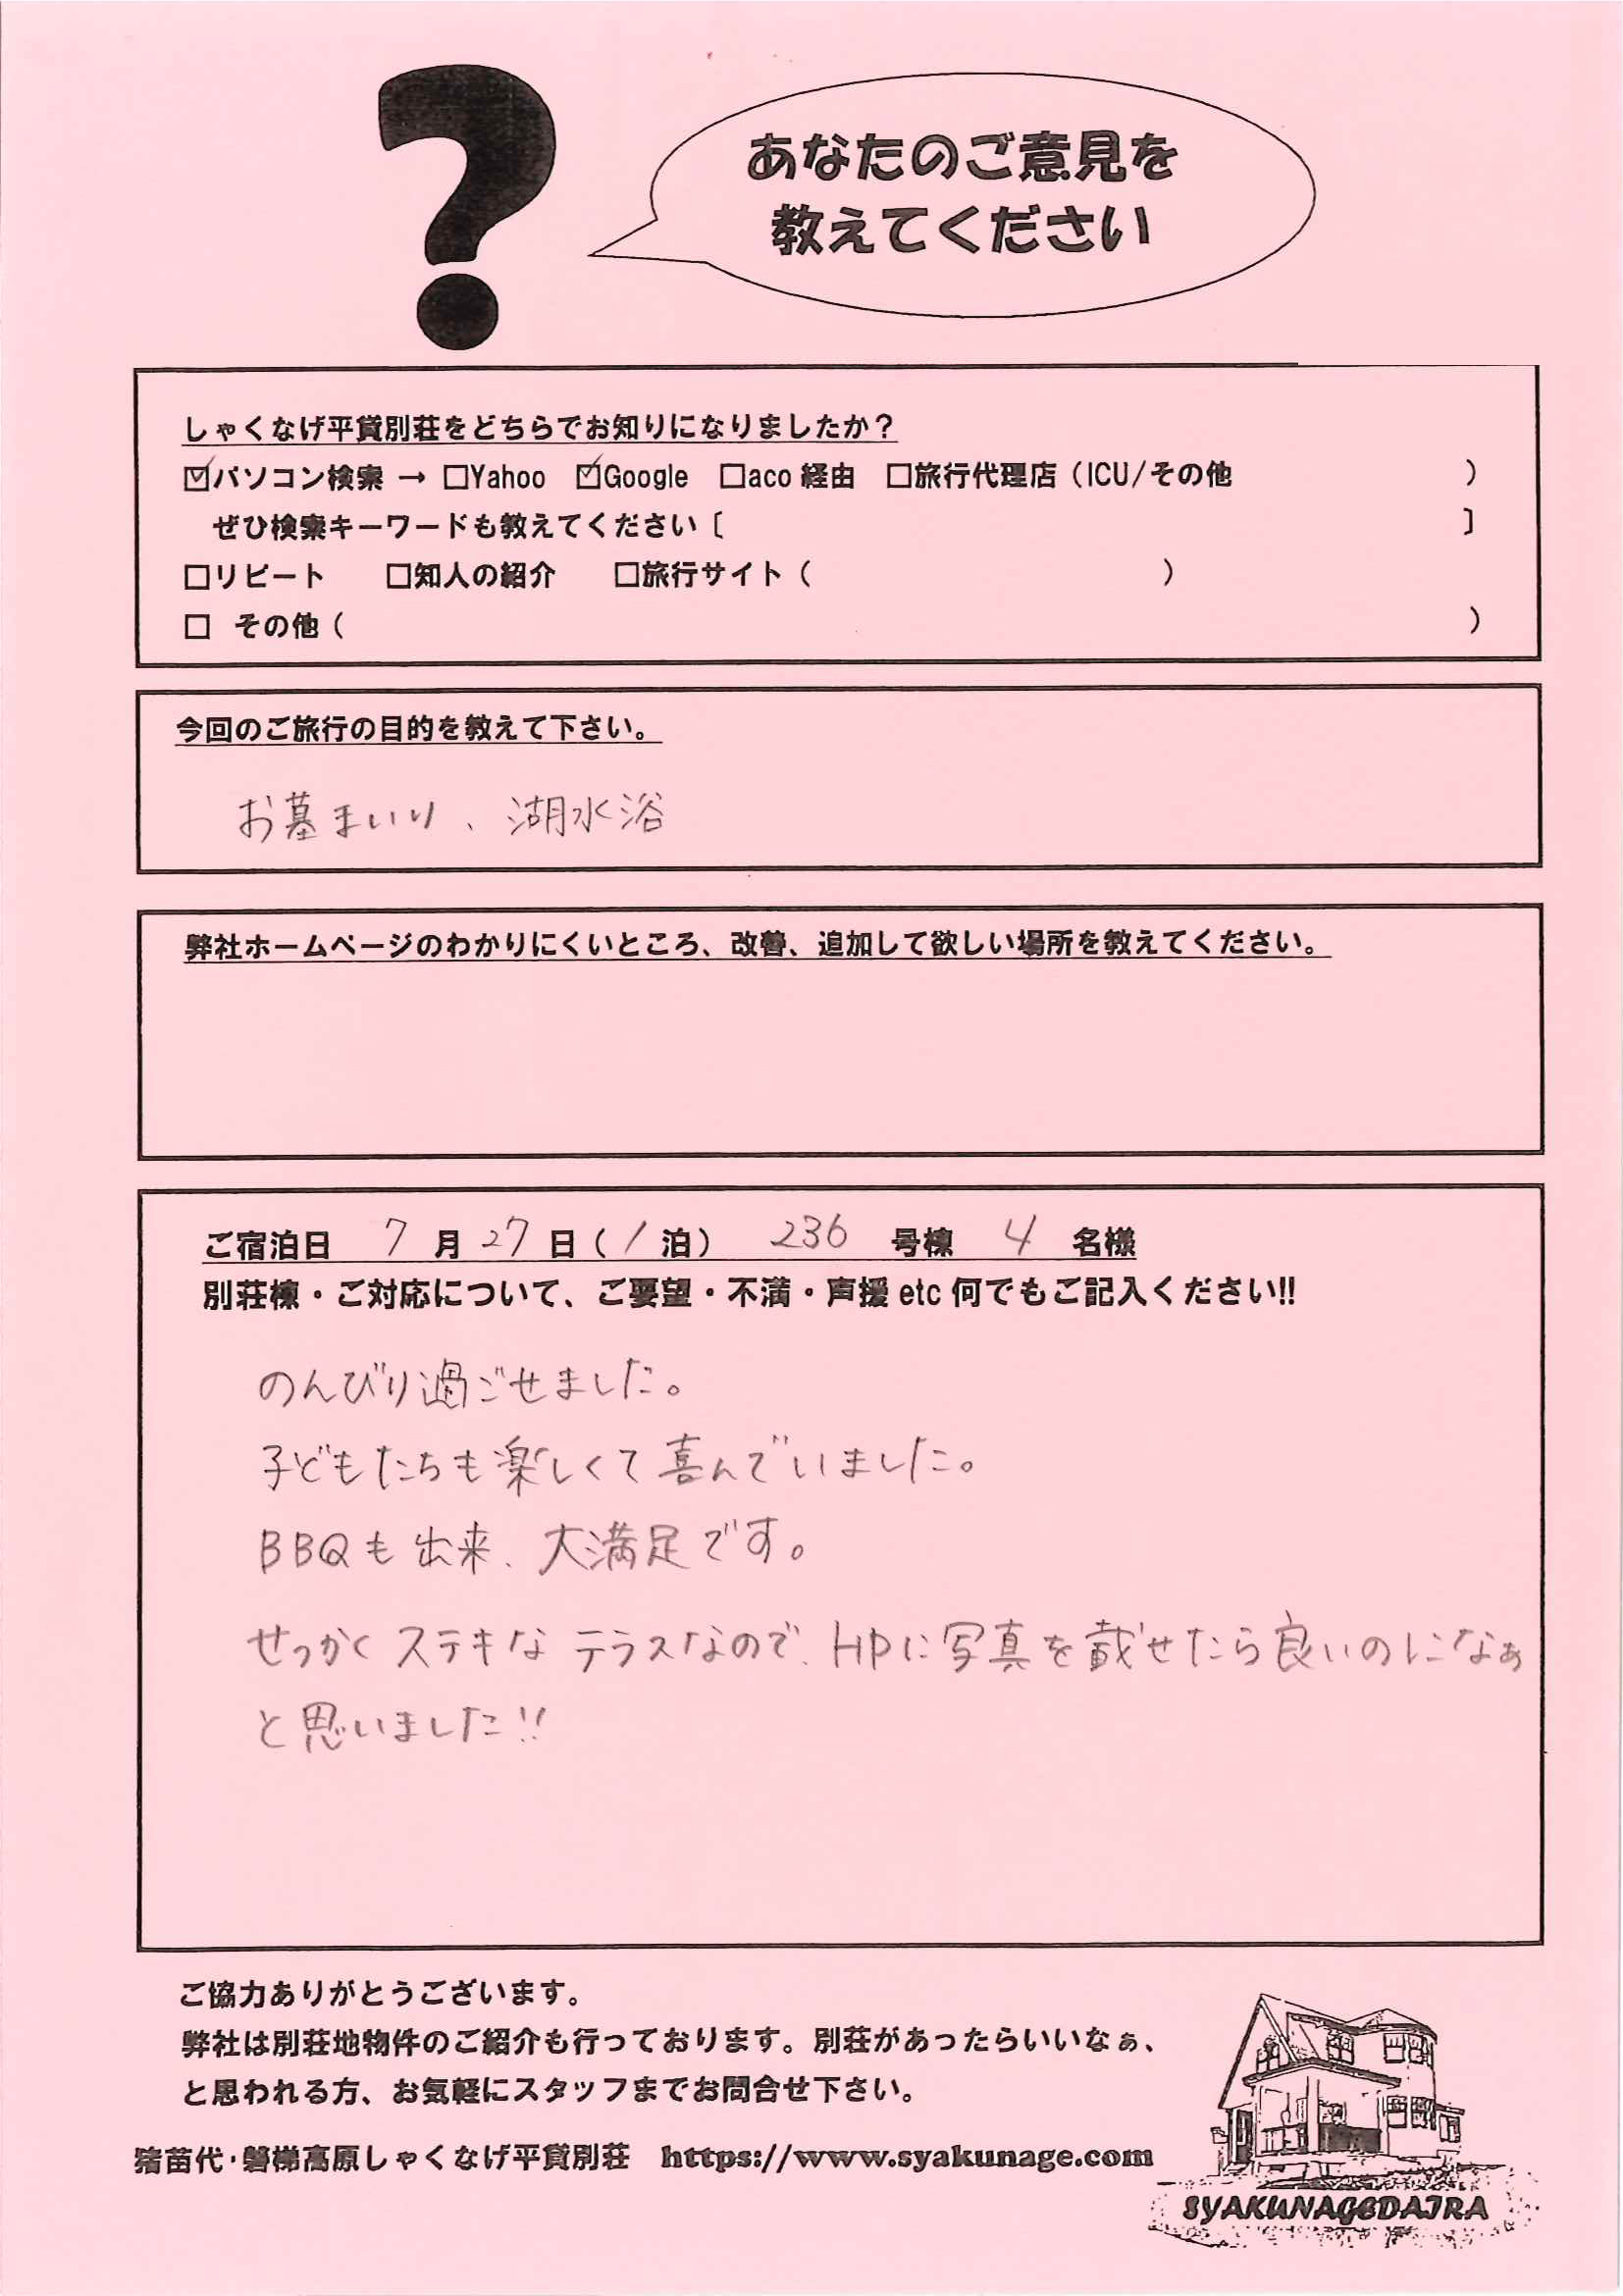 ?
あなたのご意見を
教えてください
しゃくなげ平貸別荘をどちらでお知りになりましたか？
☑パソコン検索 → □Yahoo ☑Google □aco 経由 □旅行代理店（ICU/その他 ）
ぜひ検索キーワードも教えてください〔 〕
□リピート □知人の紹介 □旅行サイト（ ）
□ その他（ ）
今回のご旅行の目的を教えて下さい。
お墓まいり、湖水浴
弊社ホームページのわかりにくいところ、改善、追加して欲しい場所を教えてください。
ご宿泊日 7 月 27 日（ 1 泊） 236 号棟 4 名様
別荘棟・ご対応について、ご要望・不満・声援 etc 何でもご記入ください!!
のんびり過ごせました。
子どもたちも楽しくて喜んでいました。
BBQも出来、大満足です。
せっかくステキなテラスなので、HPに写真を載せたら良いのになぁ
と思いました!!
ご協力ありがとうございます。
弊社は別荘地物件のご紹介も行っております。別荘があったらいいなぁ、
と思われる方、お気軽にスタッフまでお問合せ下さい。
猪苗代・磐梯高原しゃくなげ平貸別荘 https://www.syakunage.com
SYAKUNAGEDAIRA